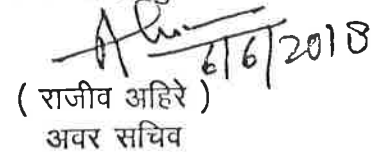 6/6/2018
( राजीव अहिरे )
अवर सचिव